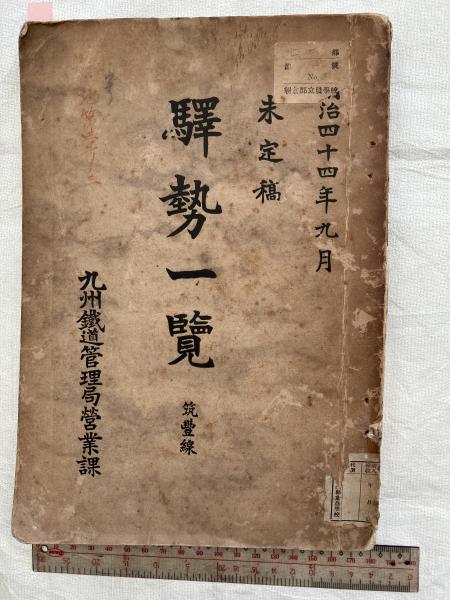 明治四十四年九月
未定稿
驛勢一覽
筑豐線
九州鐵道管理局營業課
部
號
No.